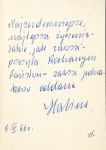 Najserdeczniejsze,
najlepsze życzenia
jak zawsze
przesyła Kochanym
Państwu - zawsze
oddana
Halina
6.IV.66r.